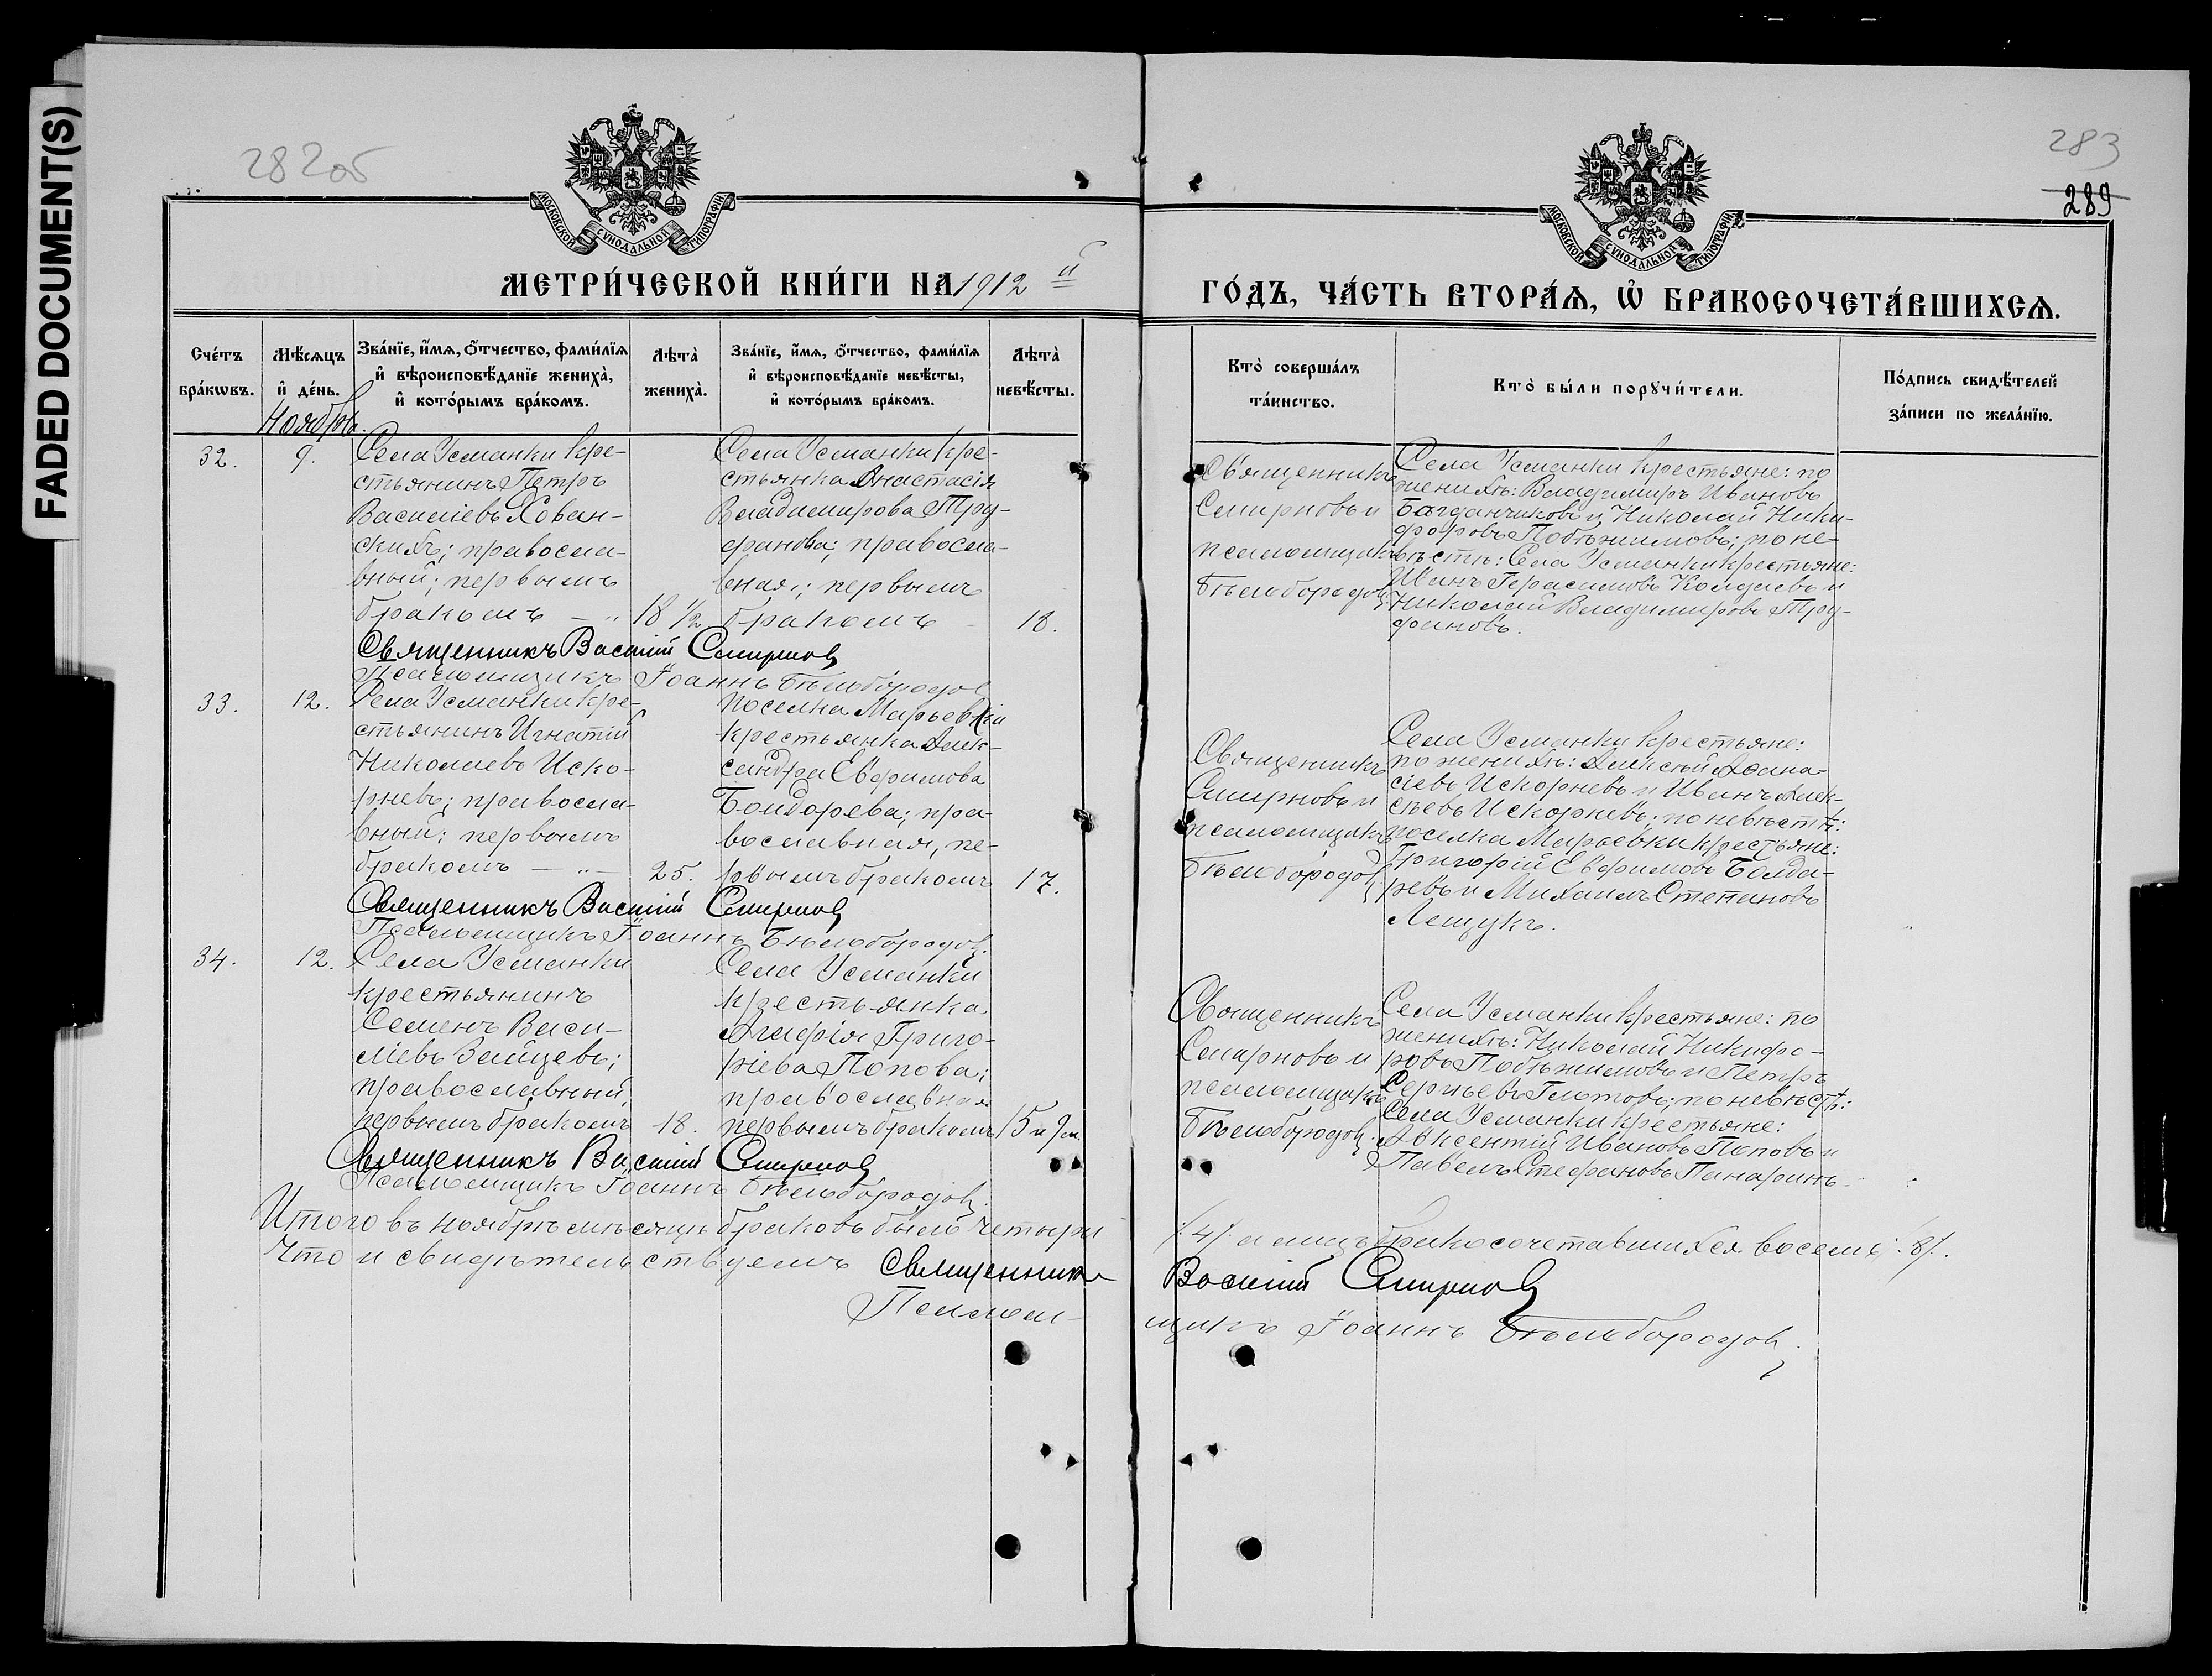 FADED DOCUMENT(S)
282об
283
289
МОСКОВСКОЙ СѴНОДАЛЬНОЙ ТИПОГРАФІИ
МОСКОВСКОЙ СѴНОДАЛЬНОЙ ТИПОГРАФІИ
МЕТРИ́ЧЕСКОЙ КНИ́ГИ НА 1912й
ГО́ДЪ, ЧА́СТЬ ВТОРА́Ѧ, Ѽ БРАКОСОЧЕТА́ВШИХСѦ.
Сче́тъ бра́кѡвъ.
Мѣ́сѧцъ и҆ де́нь.
Зва́нїе, и҆́мѧ, ѻ҆́тчество, фами́лїѧ
и҆ вѣроисповѣ́данїе жениха̀,
и҆ кото́рымъ бра́комъ.
Лѣта̀ жениха̀.
Зва́нїе, и҆́мѧ, ѻ҆́тчество, фами́лїѧ
и҆ вѣроисповѣ́данїе невѣ́сты,
и҆ кото́рымъ бра́комъ.
Лѣта̀ невѣ́сты.
Кто̀ соверша́лъ
та́инство.
Кто̀ бы́ли порꙋчи́тели.
По́дпись свидѣ́телей
за́писи по жела́нїю.
Ноябрь.
32.
9.
Села Усманки кре-
стьянинъ Петръ
Василіевъ Хован-
скихъ; правосла-
вный; первымъ
бракомъ — „
18 1/2
Села Усманки кре-
стьянка Анастасія
Владимирова Тру-
фанова; правосла-
вная; первымъ
бракомъ -
18.
Священникъ
Смирновъ и
псаломщикъ
Бѣлобородов;
Села Усманки крестьяне: по
женихѣ: Владимиръ Ивановъ
Багданчиковъ и Николай Ники-
форовъ Побѣжимовъ; по не-
вѣстѣ: Села Усманки крестьяне:
Иванъ Герасимовъ Колдаевъ и
Николай Владимировъ Тру-
фановъ.
Священникъ Василий Смирнов
Псаломщикъ Іоаннъ Бѣлобородов
33.
12.
Села Усманки кре-
стьянинъ Игнатій
Николаевъ Иско-
рневъ; правосла-
вный; первымъ
бракомъ — „ —
25.
Поселка Марьевки
крестьянка Алек-
сандра Евфимова
Болдорева; пра-
вославная, пе-
рвымъ бракомъ
17.
Священникъ
Смирновъ и
псаломщикъ
Бѣлобородов;
Села Усманки крестьяне:
по женихѣ: Алексѣй Афана-
сіевъ Искорневъ и Иванъ Алек-
сѣевъ Искорневъ; по невѣстѣ:
поселка Марьевки крестьяне:
Григорій Евфимовъ Болда-
ревъ и Михаилъ Степановъ
Лещукъ.
Священникъ Василий Смирнов
Псаломщикъ Іоаннъ Бѣлобородов.
34.
12.
Села Усманки
крестьянинъ
Семенъ Васи-
ліевъ Зайцевъ;
православный,
первымъ бракомъ
18.
Села Усманки
крестьянка
Агафія Григо-
ріева Попова;
православная
первымъ бракомъ
15 и 9 м.
Священникъ
Смирновъ и
псаломщикъ
Бѣлобородов.
Села Усманки крестьяне: по
женихѣ: Николай Никифо-
ровъ Побѣжимовъ и Петръ
Сергѣевъ Глотовъ; по невѣстѣ:
Села Усманки крестьяне:
Авксентій Ивановъ Поповъ и
Павелъ Стефановъ Панаринъ.
Священникъ Василий Смирнов
Псаломщикъ Іоаннъ Бѣлобородов.
Итого въ ноябрѣ мѣсяцѣ браковъ было четыри /4/ и лицъ бракосочетавшихся восемь /8/.
Что и свидѣтельствуемъ Священник Василий Смирнов
Псалом-щикъ Іоаннъ Бѣлобородов.